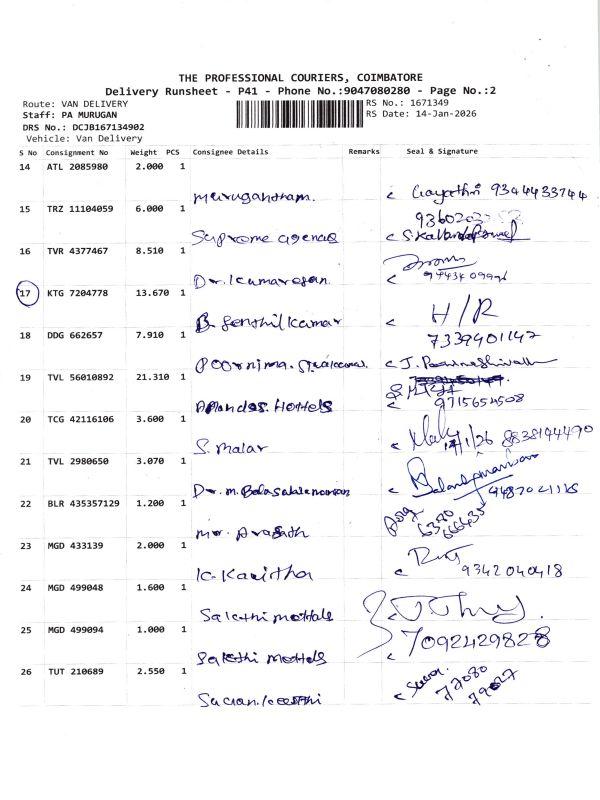 THE PROFESSIONAL COURIERS, COIMBATORE
Delivery Runsheet - P41 - Phone No.:9047080280 - Page No.:2
Route: VAN DELIVERY
RS No.: 1671349
Staff: PA MURUGAN
RS Date: 14-Jan-2026
DRS No.: DCJB167134902
Vehicle: Van Delivery
S No Consignment No Weight PCS Consignee Details Remarks Seal & Signature
14 ATL 2085980 2.000 1
Gayathri 9344433744
15 TRZ 11104059 6.000 1
Supreme
16 TVR 4377467 8.510 1
Dr. Kumaresan.
17 KTG 7204778 13.670 1
B. Senthil Kumar H/R
7339401147
18 DDG 662657 7.910 1
Poornima.
19 TVL 56010892 21.310 1
Hottels 9715654508
20 TCG 42116106 3.600 1
S. Malar 14/1/26 8838194490
21 TVL 2980650 3.070 1
Dr. M.
22 BLR 435357129 1.200 1
Mr.
23 MGD 433139 2.000 1
K. Kavitha 9342040418
24 MGD 499048 1.600 1
Sakthi Mettals
25 MGD 499094 1.000 1
Sakthi Mettals 7092429828
26 TUT 210689 2.550 1
77080
79027